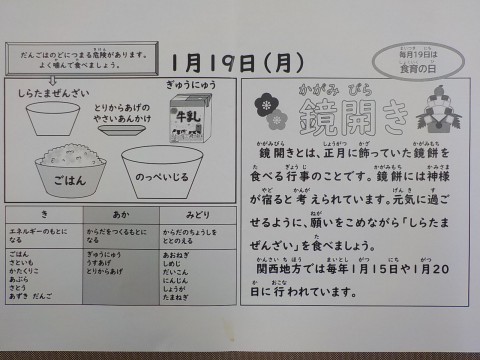 だんごはのどにつまる危険があります。
よく噛んで食べましょう。
1月19日(月)
毎月19日は
食育の日
しらたまぜんざい
とりからあげの
やさいあんかけ
ぎゅうにゅう
牛乳
ごはん
のっぺいじる
き
あか
みどり
エネルギーのもとに
なる
からだをつくるもとに
なる
からだのちょうしを
ととのえる
ごはん
さといも
かたくりこ
あぶら
さとう
あずき だんご
ぎゅうにゅう
うすあげ
とりからあげ
あおねぎ
しめじ
だいこん
にんじん
しょうが
たまねぎ
かがみ びら
鏡開き
鏡開きとは、正月に飾っていた鏡餅を
食べる行事のことです。鏡餅には神様
が宿ると考えられています。元気に過ご
せるように、願いをこめながら「しらたま
ぜんざい」を食べましょう。
関西地方では毎年1月15日や1月20
日に行われています。